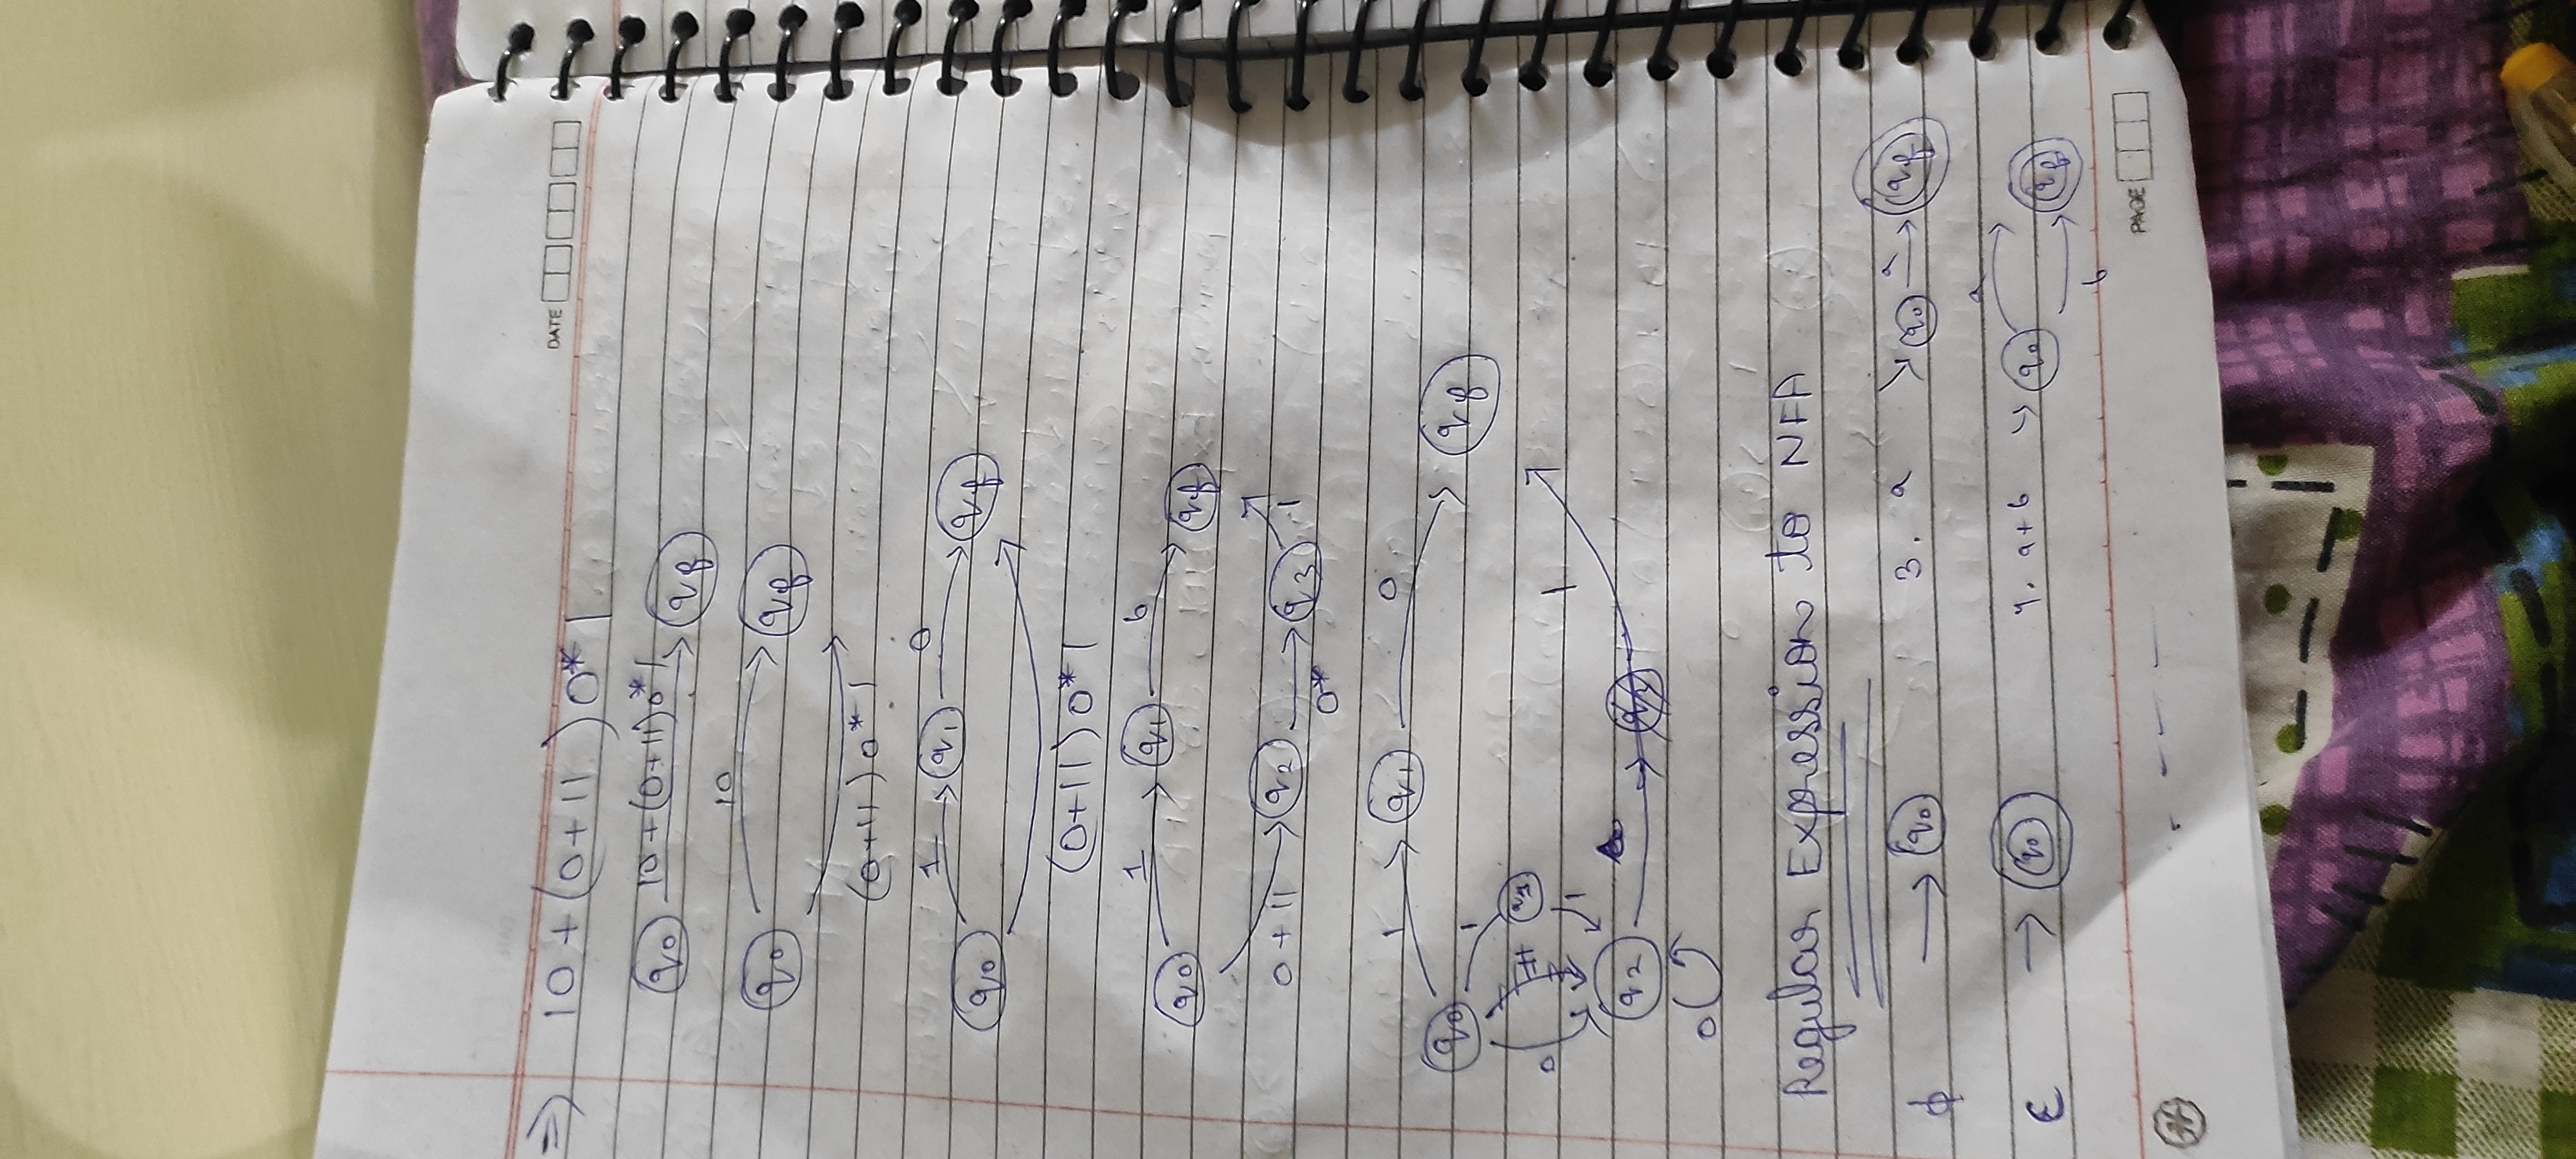 DATE
=> 10 + (0+11) 0* 1
q0 10+(0+11)0*1 qf
10
q0 qf
(0+11) 0* 1
1 q1 0
q0 qf
(0+11) 0* 1
1 q1 0
q0 qf
0 + 11 q2 0* q3 1
1 q1 0
q0 1 qf
0
1 1
q2
0
Regular Expression to NFA
ϕ → q0 3. a q0 a qf
ε → q0 4. a+b q0 a qf
b
PAGE